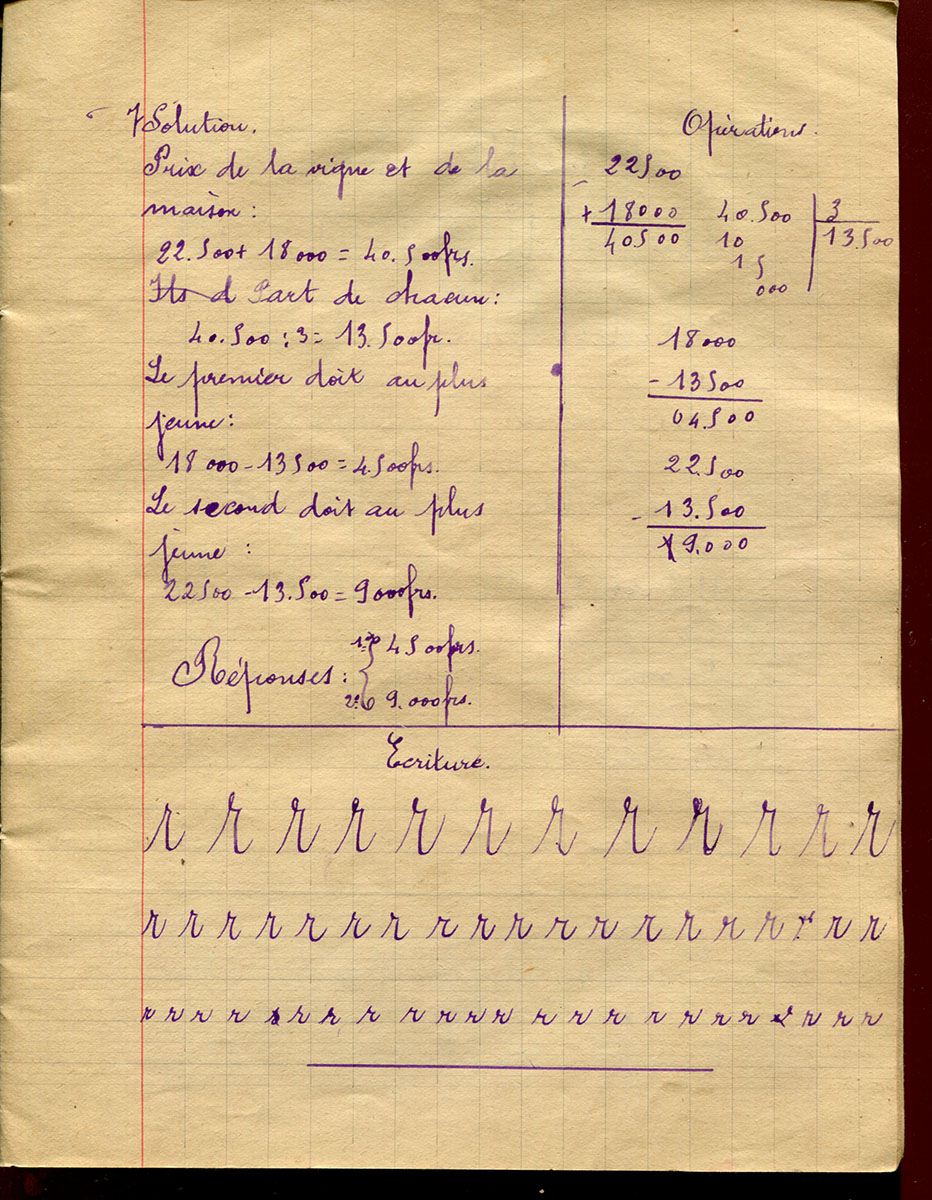 Solution.
Prix de la vigne et de la
maison :
22.500 + 18000 = 40.500frs.
Ils d Part de chacun :
40.500 : 3 = 13.500fr.
Le premier doit au plus
jeune :
18000 - 13500 = 4.500frs.
Le second doit au plus
jeune :
22500 - 13.500 = 9000frs.
Réponses : 1º 4500frs.
2º 9.000frs.
Opérations.
22500
+ 18000
40500
40.500 | 3
10 | 13.500
15
000
18000
- 13500
04.500
22.500
- 13.500
9.000
Ecriture.
r r r r r r r r r r r r
r r r r r r r r r r r r r r r r r r r
r r r r r r r r r r r r r r r r r r r r r r r